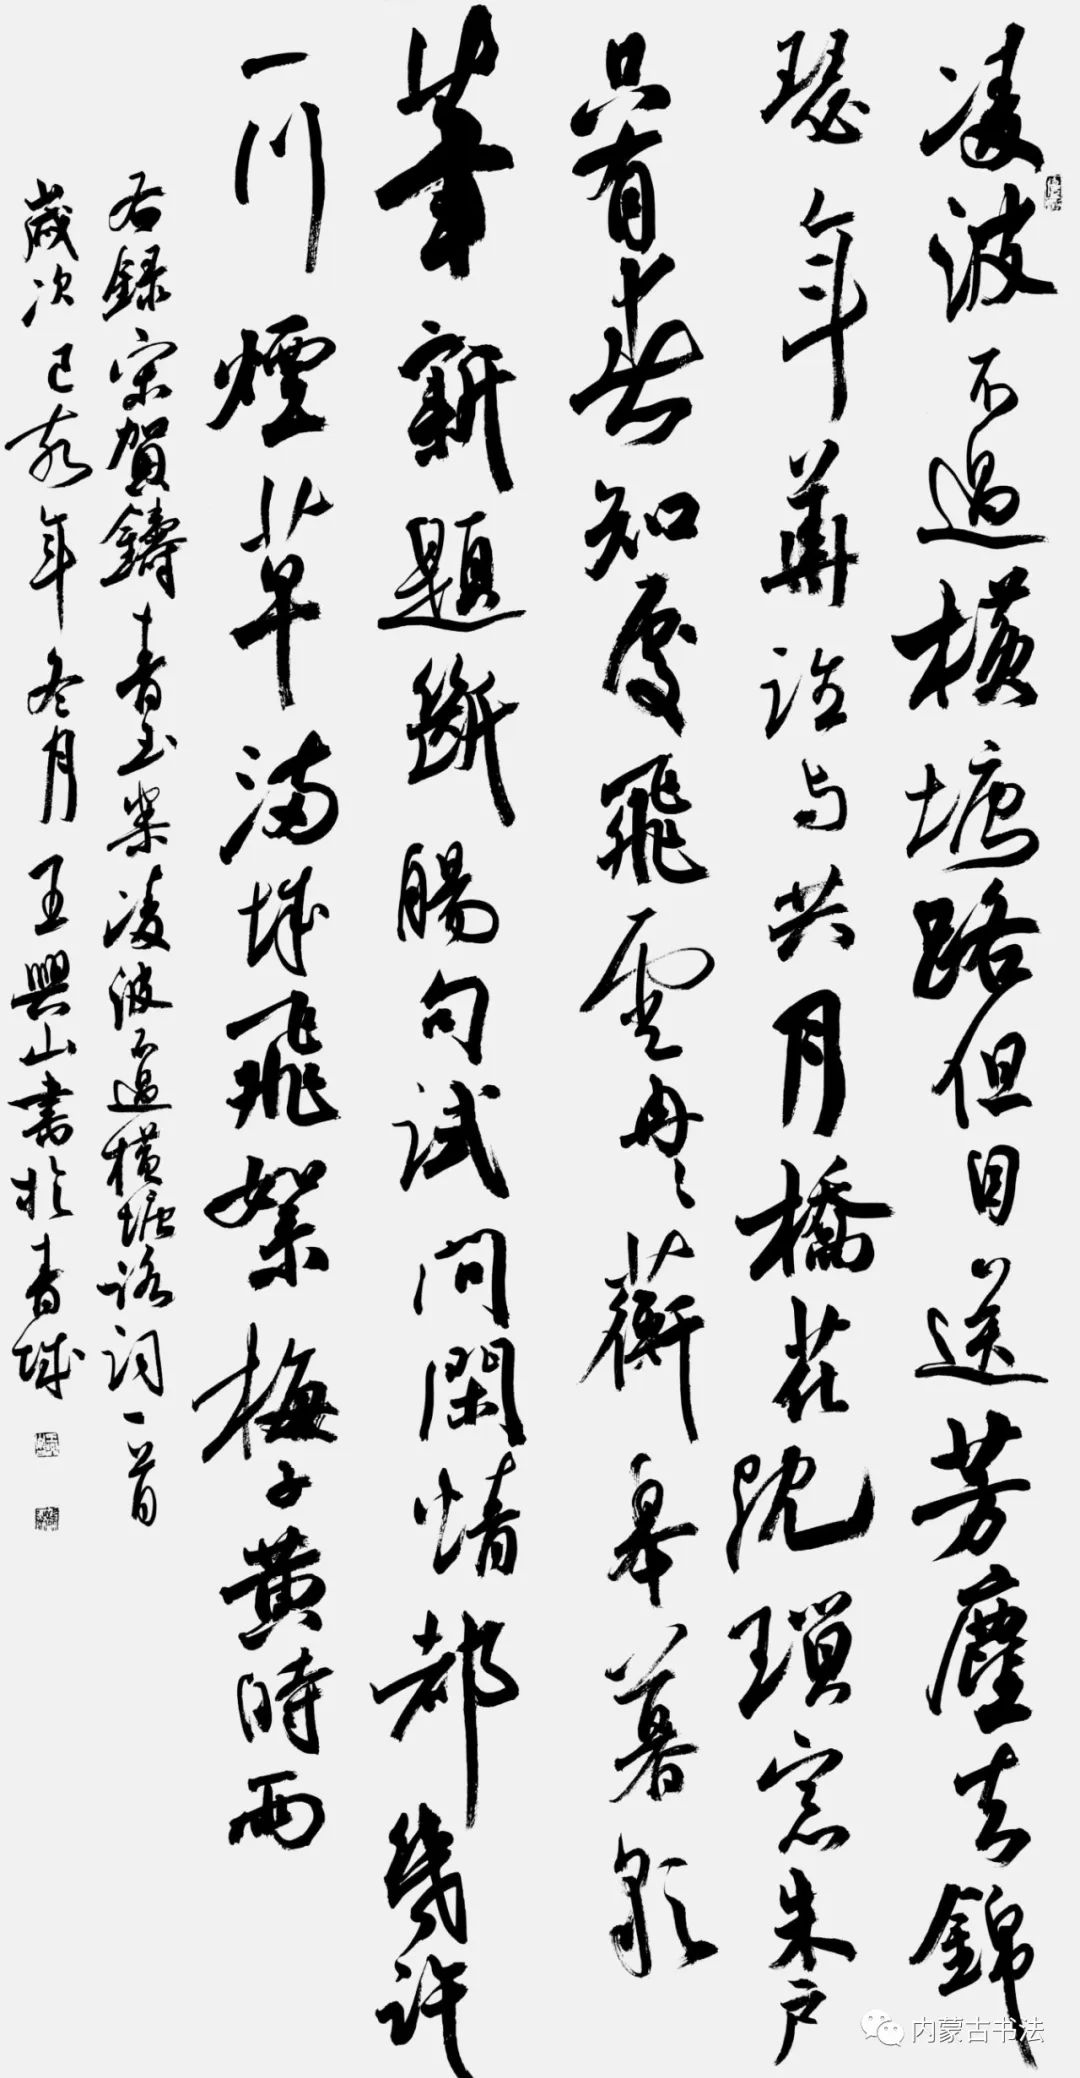 凌波不過橫塘路但目送芳塵去錦
瑟年華誰与共月橋花院瑣窓朱户
只有春知處飛雲冉〻蘅皋暮彩
筆新題斷腸句試問閑情都幾許
一川煙草滿城飛絮梅子黃時雨
右録宋賀鑄青玉案凌波不過橫塘路詞一首
歲次己亥年冬月王興山書於青城
内蒙古书法